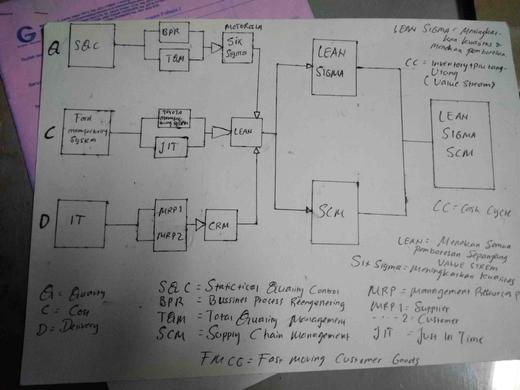 Q
SQC
BPR
TQM
MOTOROLLA
Six
Sigma
LEAN
SIGMA
LEAN SIGMA = Meningkat-
kan kualitas &
menekan pemborosan
CC = Inventory + Piutang -
Utang
(Value Stream)
C
Ford
Manufacturing
System
JIT
LEAN
LEAN
SIGMA
SCM
D
IT
MRP1
MRP2
CRM
SCM
CC = Cash Cycle
LEAN = Menekan Semua
Pemborosan Sepanjang
VALUE STREM
Six Sigma = Meningkatkan Kualitas
Q = Quality
C = Cost
D = Delivery
SQC = Statictical Quality Control
BPR = Bussines Process Reengenering
TQM = Total Quality Management
SCM = Supply Chain Management
MRP = Management Resources P
MRP 1 = Supplier
2 = Customer
JIT = Just In Time
FMCG = Fast Moving Customer Goods